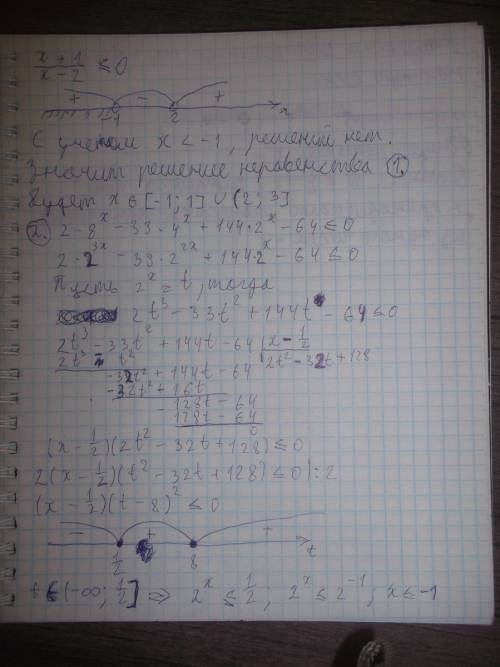 (x+1)/(x-2) ≤ 0
+ - +
-1 2 x
С учетом x < -1, решений нет.
Значит решение неравенства 1.
будет x ∈ [-1; 1] ∪ (2; 3]
2. 2·8^x - 33·4^x + 144·2^x - 64 ≤ 0
2·2^(3x) - 33·2^(2x) + 144·2^x - 64 ≤ 0
Пусть 2^x = t, тогда
2t³ - 33t² + 144t - 64 ≤ 0
2t³ - 33t² + 144t - 64 | x - 1/2
2t³ - t² | 2t² - 32t + 128
-32t² + 144t - 64
-32t² + 16t
128t - 64
128t - 64
0
(x - 1/2)(2t² - 32t + 128) ≤ 0
2(x - 1/2)(t² - 32t + 128) ≤ 0 | : 2
(x - 1/2)(t - 8)² ≤ 0
- + +
1/2 8 t
t ∈ (-∞; 1/2] ⇒ 2^x ≤ 1/2; 2^x ≤ 2^(-1); x ≤ -1